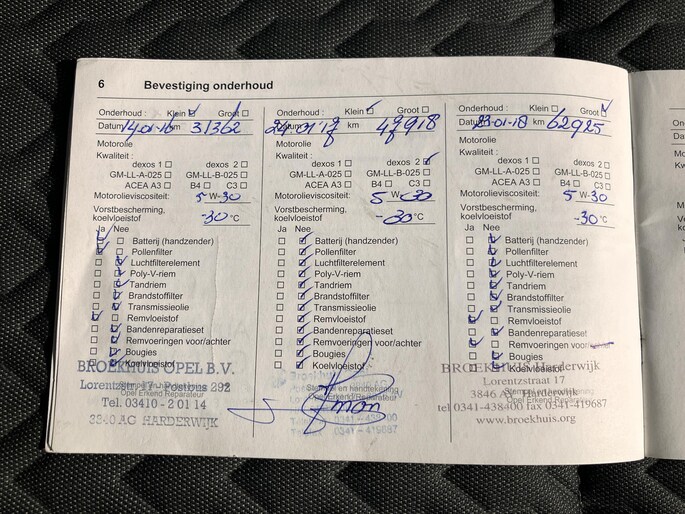 6 Bevestiging onderhoud
Onderhoud : Klein Groot
Datum 14-01-16 km 31362
Motorolie
Kwaliteit :
dexos 1 dexos 2
GM-LL-A-025 GM-LL-B-025
ACEA A3 B4 C3
Motorolieviscositeit: 5 W-30
Vorstbescherming,
koelvloeistof -30 °C
Ja Nee
Batterij (handzender)
Pollenfilter
Luchtfilterelement
Poly-V-riem
Tandriem
Brandstoffilter
Transmissieolie
Remvloeistof
Bandenreparatieset
Remvoeringen voor/achter
Bougies
Koelvloeistof
BROEKHUIS OPEL B.V.
Lorentzstr. 17 - Postbus 292
Opel Erkend Reparateur
Tel. 03410 - 2 01 14
3840 AG HARDERWIJK
Onderhoud : Klein Groot
Datum 24-01-17 km 47918
Motorolie
Kwaliteit :
dexos 1 dexos 2
GM-LL-A-025 GM-LL-B-025
ACEA A3 B4 C3
Motorolieviscositeit: 5 W-30
Vorstbescherming,
koelvloeistof -30 °C
Ja Nee
Batterij (handzender)
Pollenfilter
Luchtfilterelement
Poly-V-riem
Tandriem
Brandstoffilter
Transmissieolie
Remvloeistof
Bandenreparatieset
Remvoeringen voor/achter
Bougies
Koelvloeistof
Stempel en handtekening
Opel Erkend Reparateur
0341-419687
Onderhoud : Klein Groot
Datum 23-01-18 km 62925
Motorolie
Kwaliteit :
dexos 1 dexos 2
GM-LL-A-025 GM-LL-B-025
ACEA A3 B4 C3
Motorolieviscositeit: 5 W-30
Vorstbescherming,
koelvloeistof -30 °C
Ja Nee
Batterij (handzender)
Pollenfilter
Luchtfilterelement
Poly-V-riem
Tandriem
Brandstoffilter
Transmissieolie
Remvloeistof
Bandenreparatieset
Remvoeringen voor/
Bougies
Koelvloeistof
BROEKHUIS Harderwijk
Lorentzstraat 17
3846 AV Harderwijk
Opel Erkend Reparateur
tel 0341-438400 fax 0341-419687
www.broekhuis.org